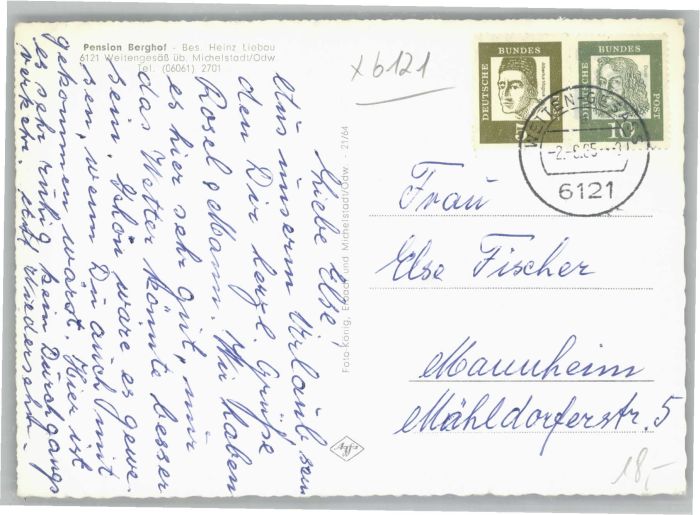 Pension Berghof - Bes. Heinz Liebau
6121 Weitengesäß üb. Michelstadt/Odw
Tel. (06061) 2701
x 6121
Liebe Else!
Aus unserm Urlaub sen
den Dir herzl. Grüße
Rosel & Mann. Wir haben
es hier sehr gut, nur
das Wetter könnte besser
sein. Schön wäre es gewe
sen, wenn Du auch mit
gekommen wärst. Hier ist
es sehr ruhig kein Durchgangs
verkehr. Auf Wiedersehn.
Foto-König, Erbach und Michelstadt/Odw. - 21/64
Agfa
DEUTSCHE BUNDES POST
5
DEUTSCHE BUNDES POST
Dürer
10
WEITENGESÄSS
6121
Frau
Else Fischer
Mannheim
Mühldorferstr. 5
18,-